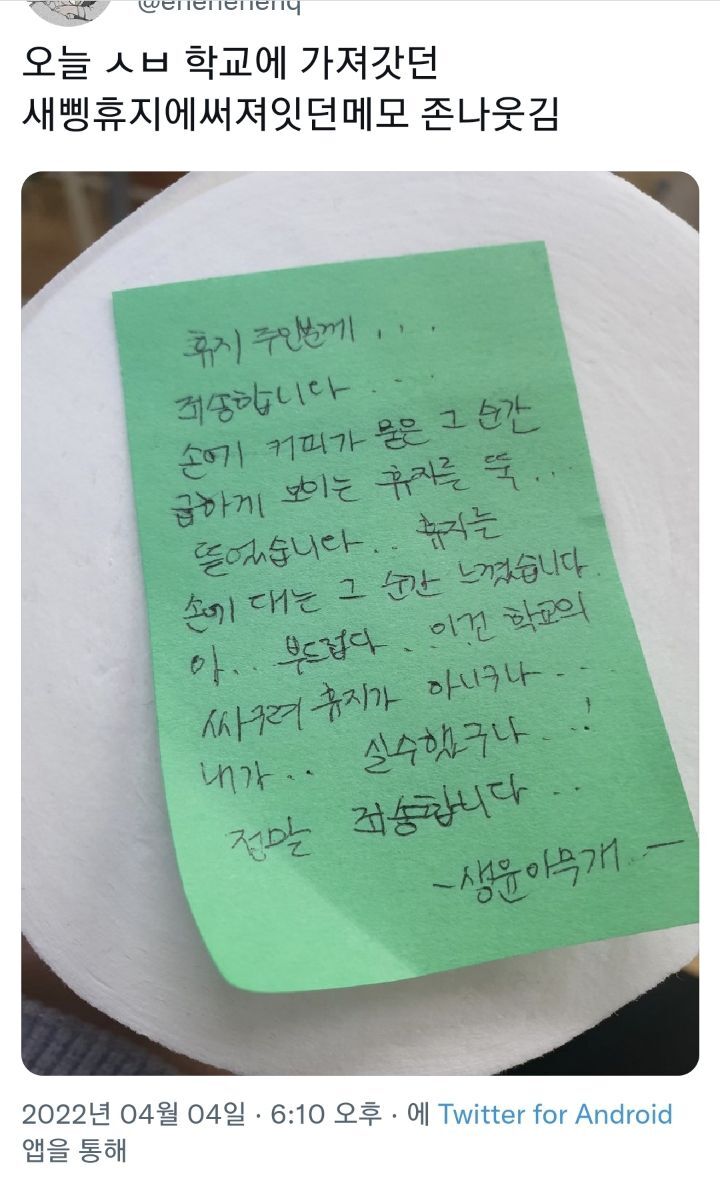 오늘 ㅅㅂ 학교에 가져갓던
새삥휴지에써져잇던메모 존나웃김
휴지 주인분께 . . .
죄송합니다 . . .
손에 커피가 묻은 그 순간
급하게 보이는 휴지를 뚝...
뜯었습니다.. 휴지는
손에 대는 그 순간 느꼈습니다.
아.. 부드럽다.. 이건 학교의
싸구려 휴지가 아니구나...
내가.. 실수했구나...!
정말 죄송합니다..
-생윤아무개.-
2022년 04월 04일 · 6:10 오후 · 에 Twitter for Android
앱을 통해